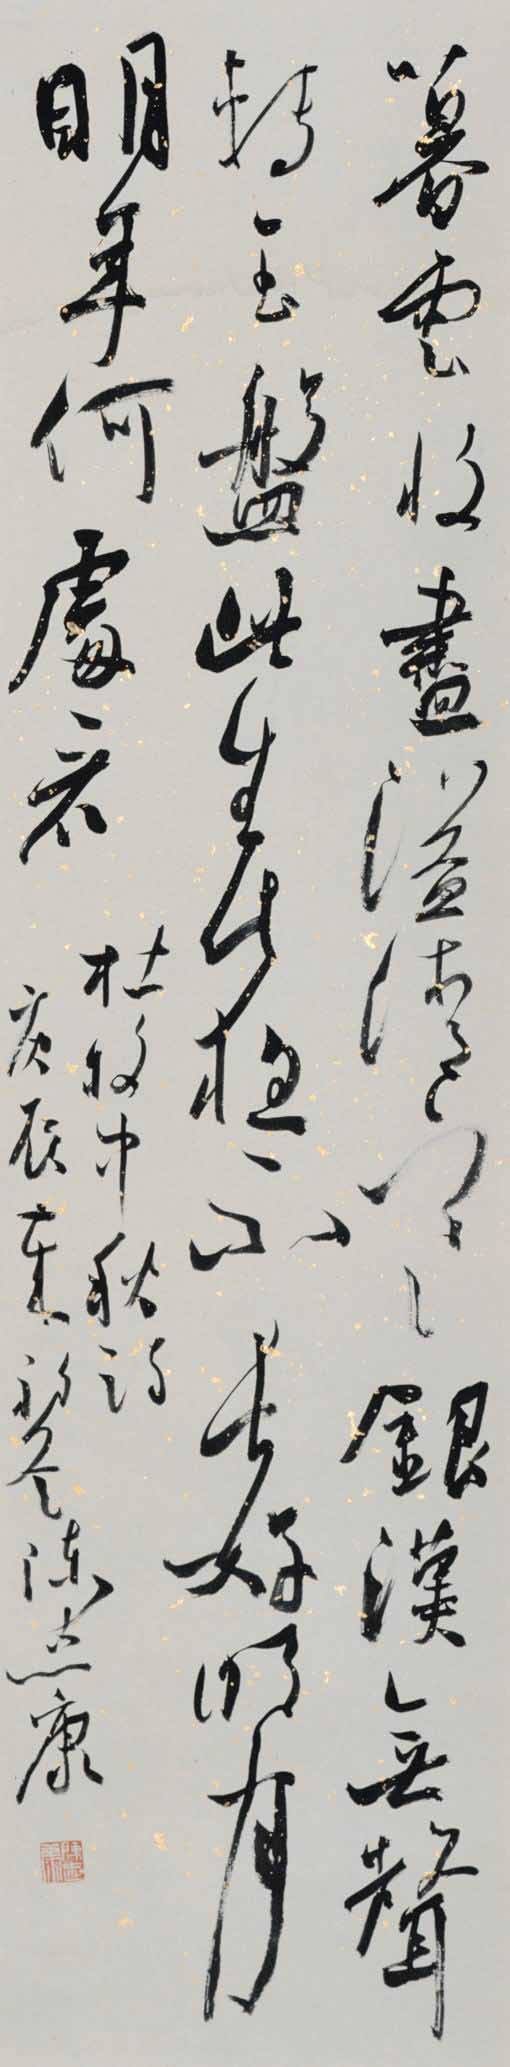 暮雲收盡溢清寒銀漢無聲
轉玉盤此生此不長好明月
明年何處看
杜牧中秋詩
庚辰陳志康